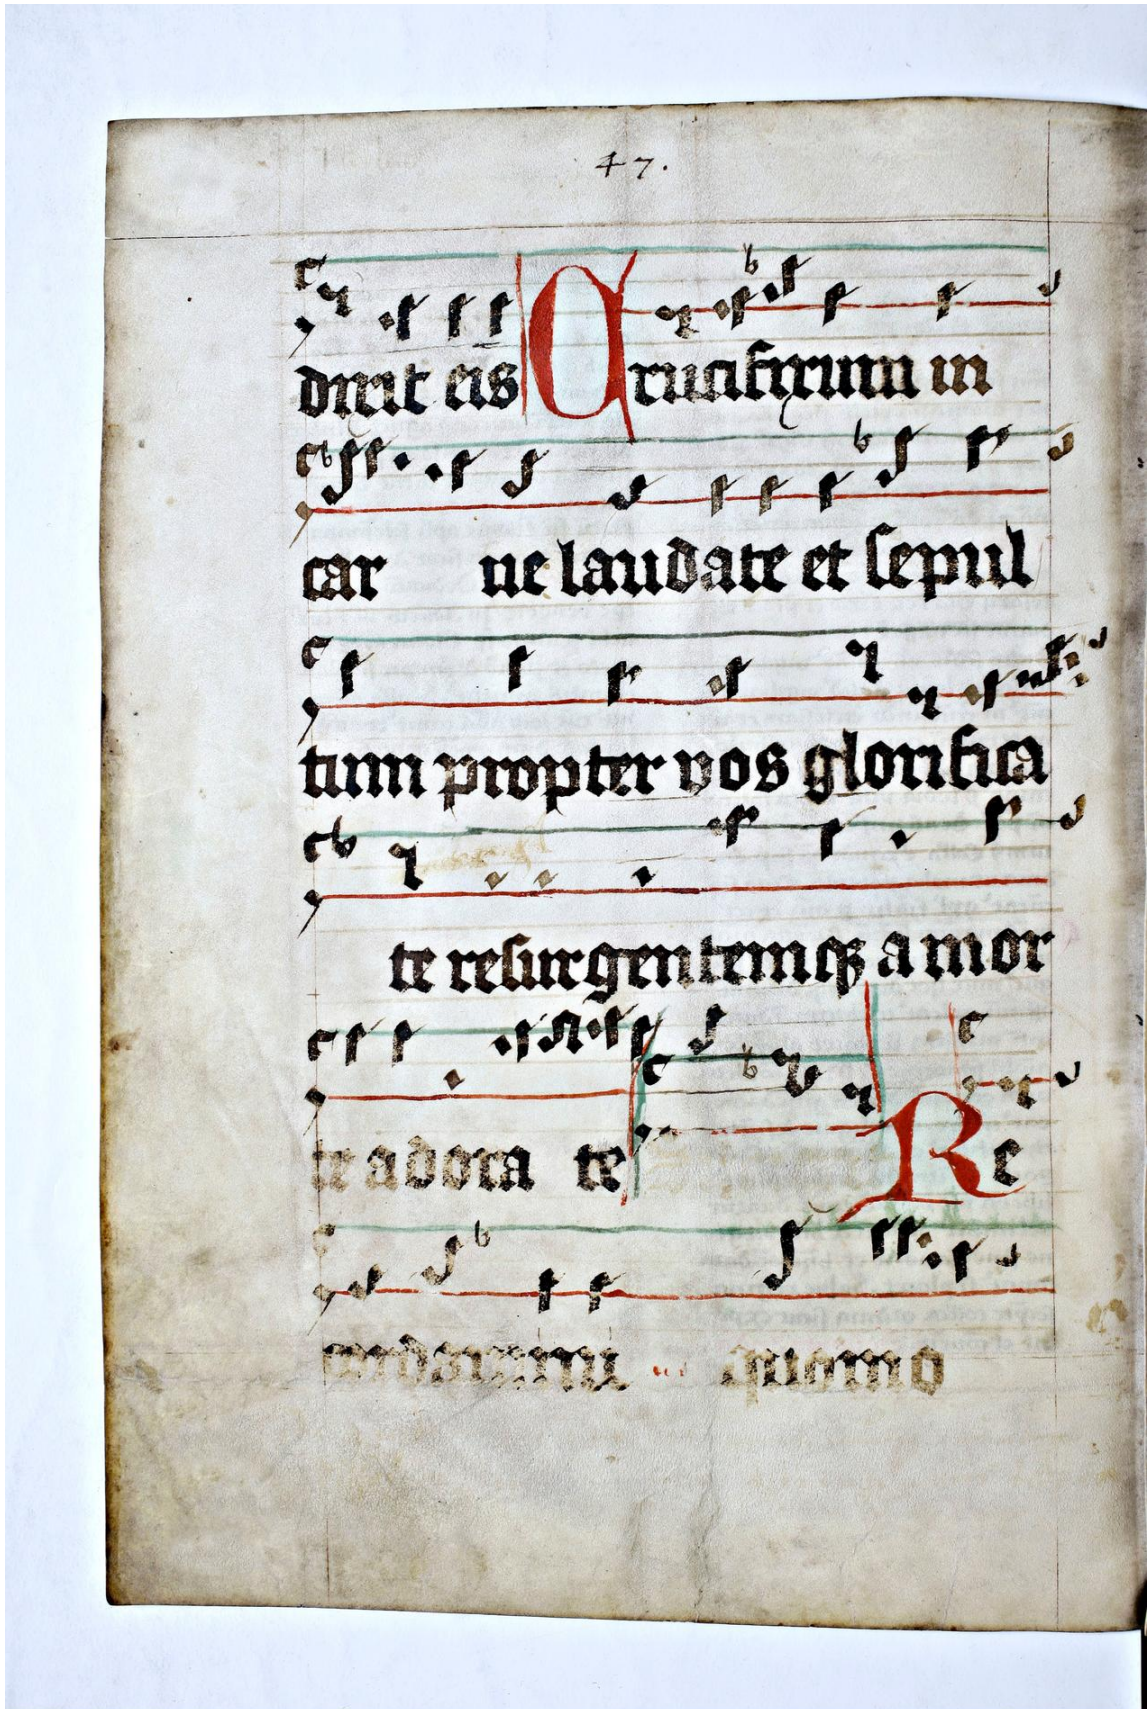 47.
dixit eis Crucifixum in
car ne laudate et sepul
tum propter vos glorifica
te resurgentemqꝫ a mor
te adora te Re
cordamini quomo